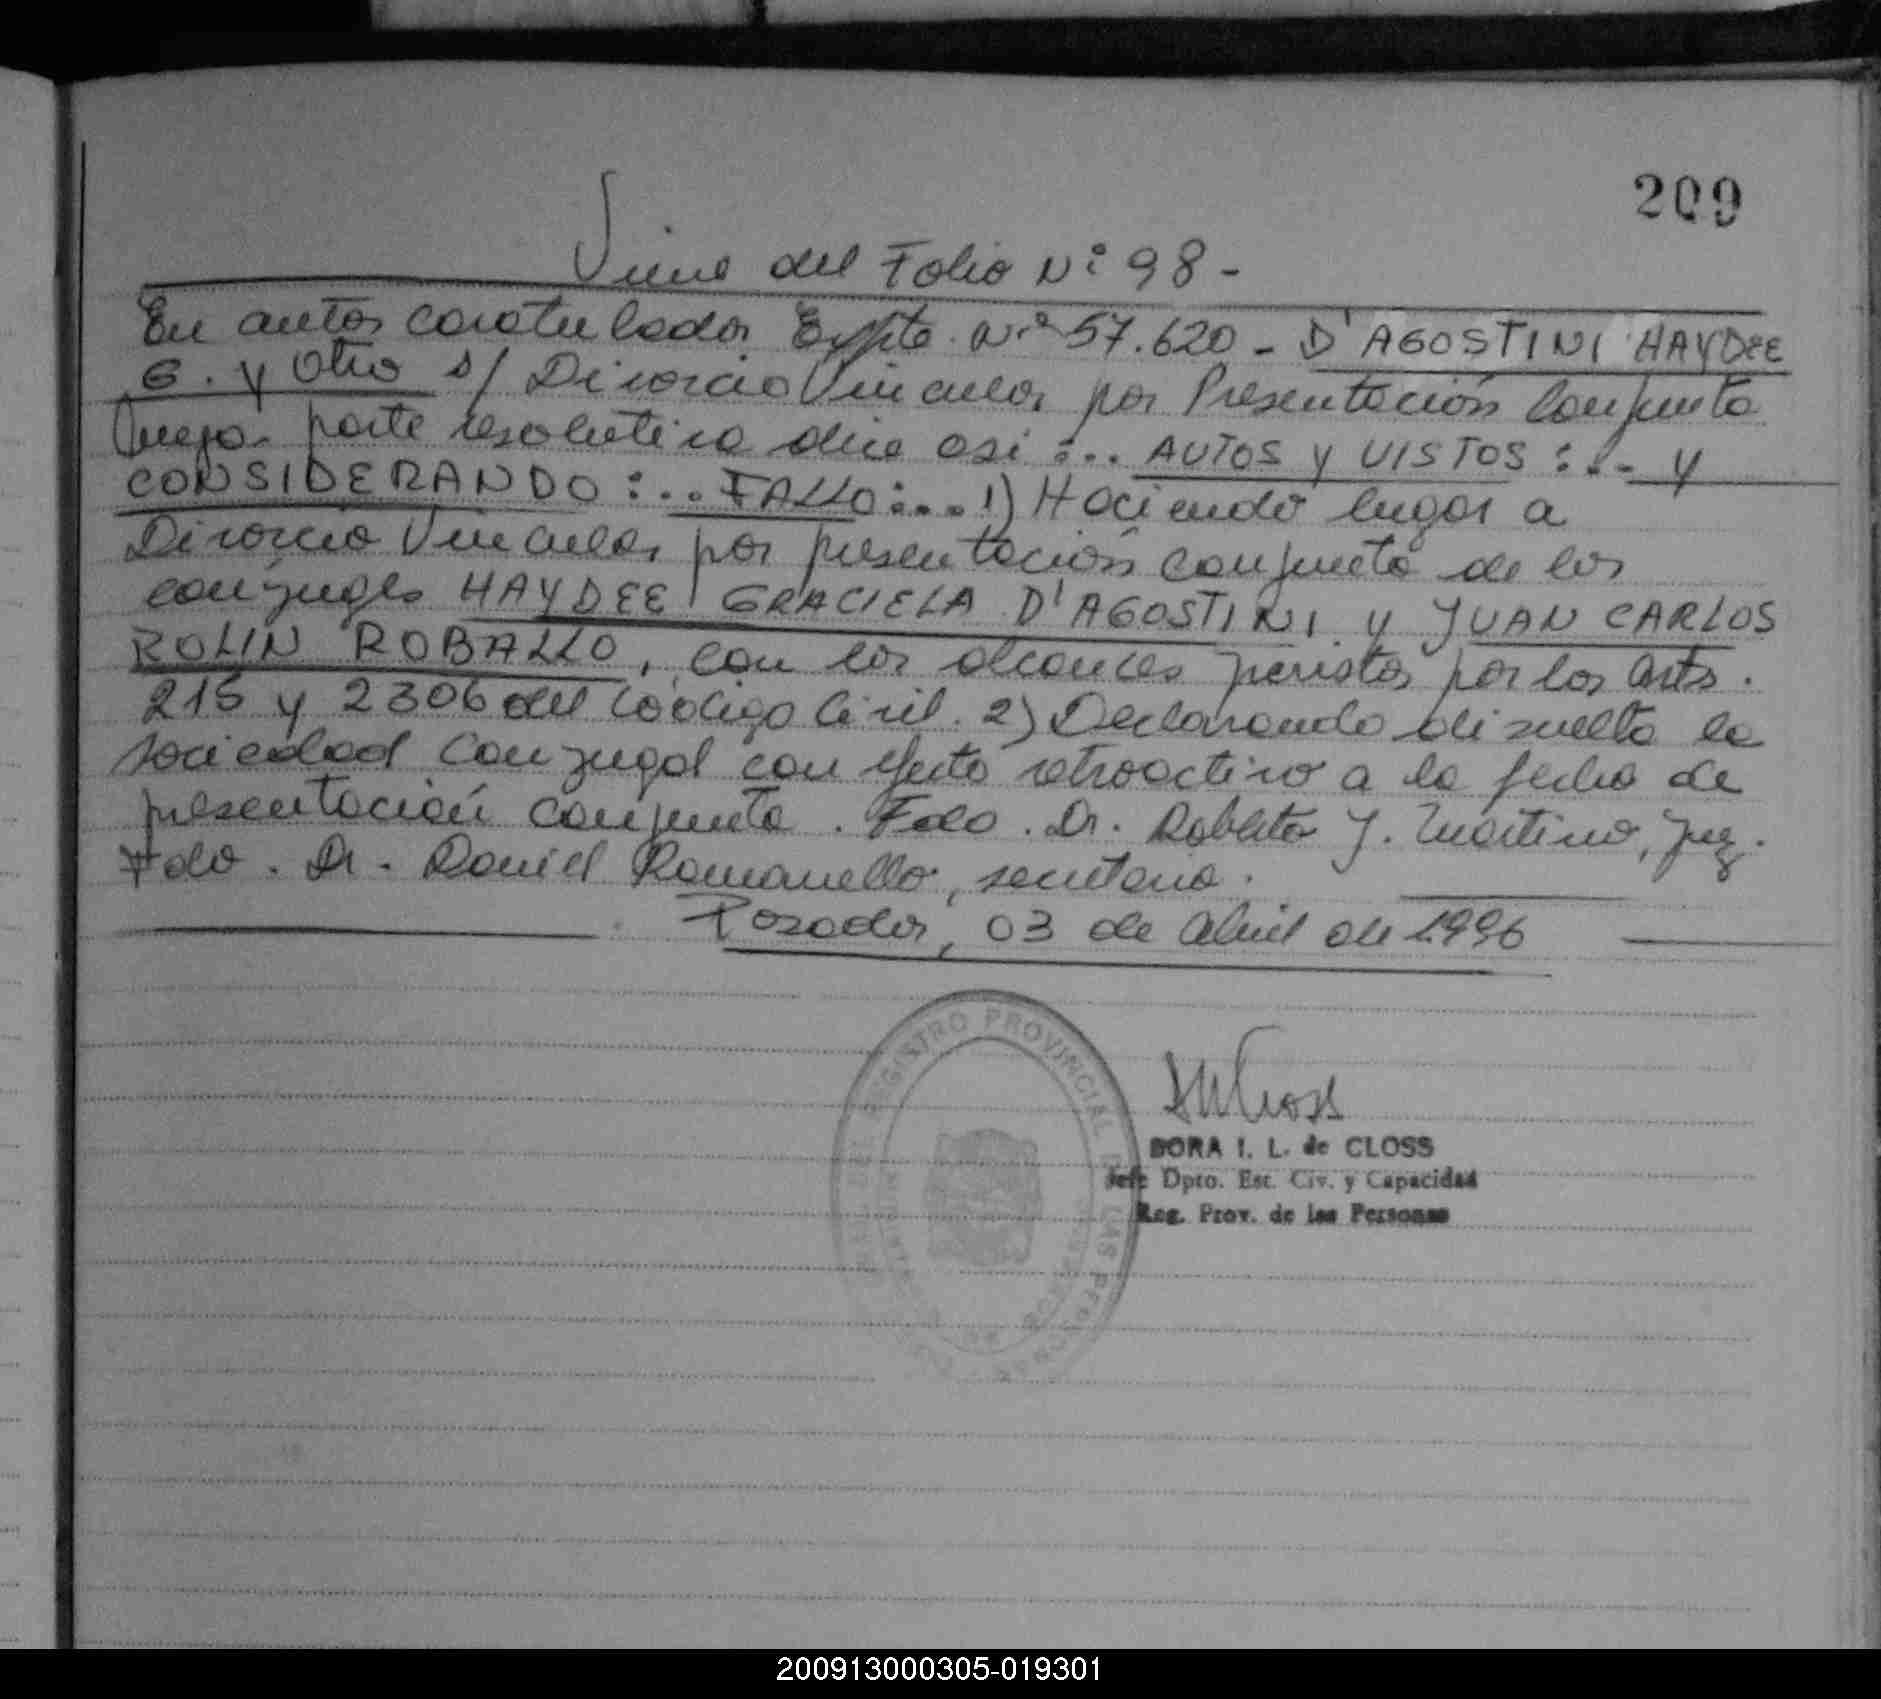 209
Viene del Folio Nº 98 -
En autos caratulados Expte. Nº 57.620 - D'AGOSTINI HAYDEE
G. y Otro s/ Divorcio Vincular por Presentación Conjunta
Cuya parte resolutiva dice asi :... AUTOS y VISTOS :... y
CONSIDERANDO :... FALLO :... 1) Haciendo lugar a
Divorcio Vincular por presentación conjunta de los
conjuges HAYDEE GRACIELA D'AGOSTINI y JUAN CARLOS
ROLIN ROBALLO, con los alcances previstos por los arts.
215 y 2306 del Código Civil. 2) Declarando disuelta la
sociedad conyugal con efecto retroactivo a la fecha de
presentación conjunta. Fdo. Dr. Roberto J. Martino, Juez.
Fdo. Dr. Daniel Romanello, secretario.
Posadas, 03 de Abril de 1996
REGISTRO PROVINCIAL DE LAS PERSONAS
DORA I. L. de CLOSS
Jefe Dpto. Est. Civ. y Capacidad
Reg. Prov. de las Personas
200913000305-019301